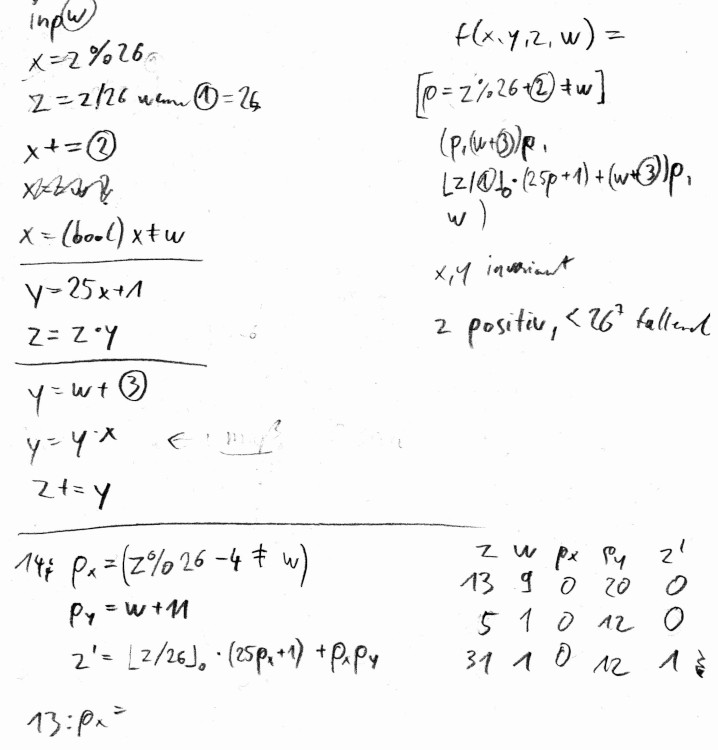 inp w
x = z % 26
z = z/26 wenn ① = 26
x += ②
x = (bool) x ≠ w
y = 25x+1
z = z·y
y = w + ③
y = y·x
z += y
f(x,y,z,w) =
[p = z%26+② ≠ w]
(p,(w+③)p,
⌊z/①⌋₀·(25p+1)+(w+③)p,
w)
x,y invariant
z positiv, < 26⁷ fallend
14: pₓ = (z%26 -4 ≠ w)
p_y = w+11
z' = ⌊z/26⌋₀ · (25pₓ+1) + pₓp_y
13: pₓ =
z w pₓ p_y z'
13 9 0 20 0
5 1 0 12 0
31 1 0 12 1